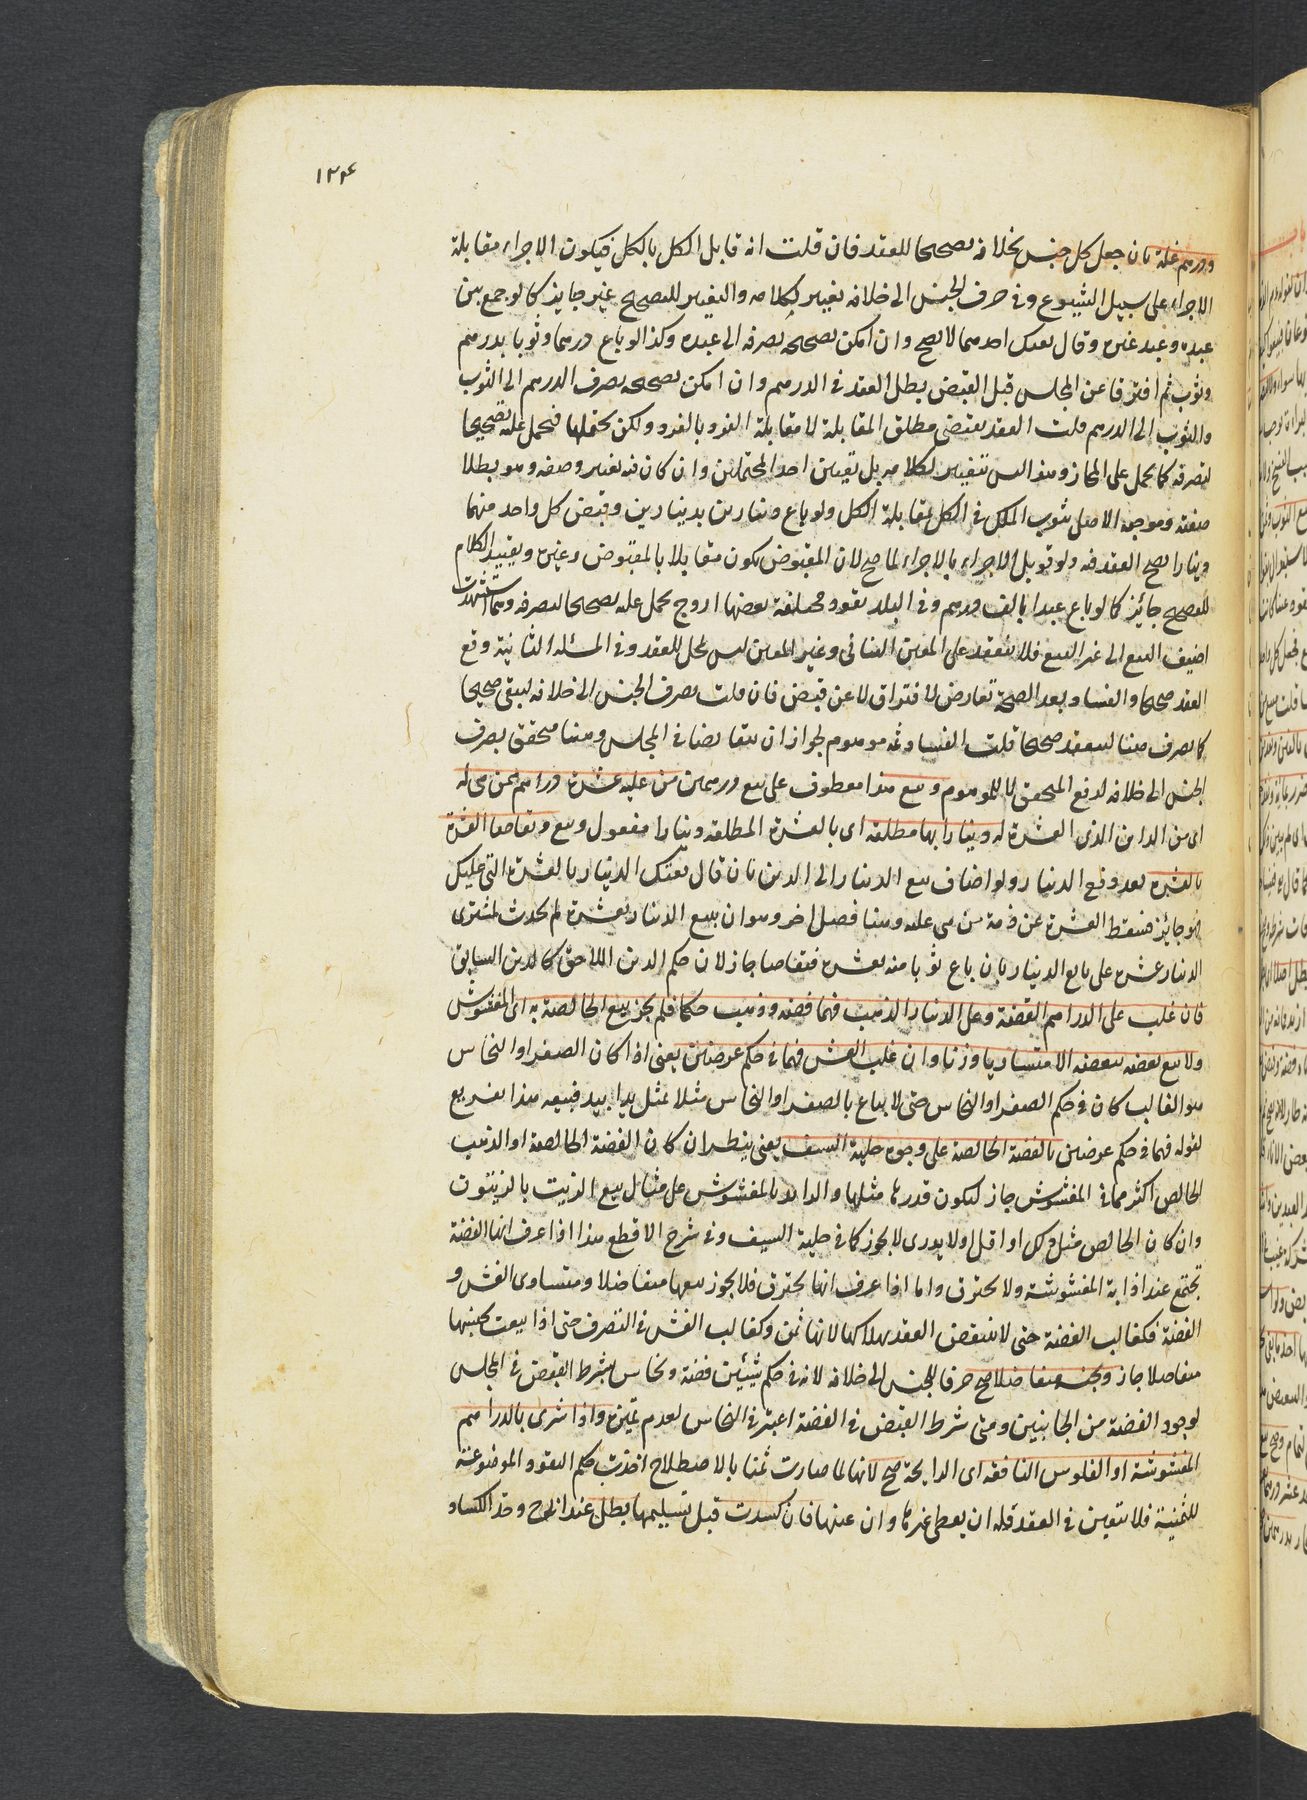 ١٢٤
ودرهم غلة بان جعل كل جنس بخلافه تصحيحا للعقد فان قلت انه قابل الكل بالكل فيكون الاجزاء مقابلة
الاجزاء على سبيل الشيوع وفي صرف الجنس الى خلافه تغيير لكلامه والتغيير للتصحيح غير جايز كما لو جمع بين
عبده وعبد غيره وقال بعتك احدهما لا يصح وان امكن تصحيحه بصرفه الى عبده وكذا لو باع درهما وثوبا بدرهم
وثوب ثم افترقا عن المجلس قبل القبض يبطل العقد في الدرهم وان امكن تصحيحه بصرف الدرهم الى الثوب
والثوب الى الدرهم قلت العقد يقتضي مطلق المقابلة لا مقابلة الفرد بالفرد ولكن يحتملها فحمل عليه تصحيحا
لتصرفه كما يحمل على المجاز وهذا ليس تغيير لكلامه بل تعيين احد المحتملين وان كان فيه تغيير وصفه وهو يطلا
صفته وموجبه الاصلي ثبوت الملك في الكل بمقابلة الكل ولو باع دينارين بدينارين وقبض كل واحد منهما
دينارا يصح العقد فيه ولو قوبل الاجزاء بالاجزاء لما صح لان المقبوض يكون مقابلا بالمقبوض وغيره وتقييد الكلام
للتصحيح جائز كما لو باع عبدا بالف درهم وفي البلد نقود مختلفة بعضها اروج يحمل عليه تصحيحا لتصرفه وما استشهدت
اضيف البيع الى غير المبيع فلا ينعقد على المعين الثاني وغير المعين ليس بمحل للعقد وفي المسئلة الثانية وقع
العقد صحيحا والفساد بعد الصحة تعارض للافتراق لا عن قبض فان قلت يصرف الجنس الى خلافه ليبقى صحيحا
كما يصرف هنا لينعقد صحيحا قلت الفساد ثمه موهوم لجواز ان يتقابضا في المجلس وهنا متحقق يصرف
الجنس الى خلافه لدفع المتحقق لا للموهوم وبيع هذا معطوف على بيع درهمين من عليه عشرة دراهم ممن هي له
اي من الداين الذي العشرة له دينارا بها مطلقة اي بالعشرة المطلقة دينارا مفعول وبيع وتقاصا العشرة
بالعشرة بعد دفع الدينار ولو اضاف بيع الدينار الى الدين بان قال بعتك الدينار بالعشرة التي عليك
فهو جائز فتسقط العشرة عن ذمة من هي عليه وهنا فصل اخر وهو ان يبيع الدينار بعشرة ثم يحدث لمشتري
الدينار عشرة على بايع الدينار بان باع ثوبا منه بعشرة فتقاصا جاز لان حكم الدين اللاحق كالدين السابق
فان غلب على الدراهم الفضة وعلى الدنانير الذهب فهما فضة وذهب حكما فلم يجز بيع الخالصة به اي المغشوش
ولا بيع بعضه ببعضه الا متساويا وزنا وان غلب الغش فهما في حكم عرضين يعني اذا كان الصفر او النحاس
هو الغالب كان في حكم الصفر او النحاس حتى لا يباع بالصفر او النحاس مثلا بمثل يدا بيد فبيعه هذا تفريع
لقوله فهما في حكم عرضين بالفضة الخالصة على وجوه حلية السيف يعني ينظر ان كان الفضة الخالصة او الذهب
الخالص اكثر مما في المغشوش جاز ليكون قدرها مثلها والزايد بالمغشوش على مثال بيع الزيت بالزيتون
وان كان الخالص مثل ذلك او اقل او لا يدرى لا يجوز كما في حلية السيف وفي شرح الاقطع هذا اذا عرف انها الفضة
تجتمع عند اذابة المغشوشة ولا تحترق واما اذا عرف انها تحترق فلا يجوز بيعها متفاضلا ومتساوى الغش و
الفضة فكغالب الفضة حتى لا ينتقض العقد بهلاكها لانها ثمن وكغالب الغش في التصرف حتى اذا بيعت بجنسها
متفاضلا جاز وبجنسه متفاضلا صح صرفا للجنس الى خلافه لانه في حكم شيئين فضة ونحاس بشرط القبض في المجلس
لوجود الفضة من الجانبين ومتى شرط القبض في الفضة اعتبر في النحاس لعدم تميزه واذا شرى بالدراهم
المغشوشة او الفلوس النافقة اي الرايجة صح لانها لما صارت ثمنا بالاصطلاح اخذت حكم النقود الموضوعة
للثمنية فلا تتعين في العقد فله ان يعطي غيرها وان عينها فان كسدت قبل تسليمها بطل عند ابي ح وحد الكساد